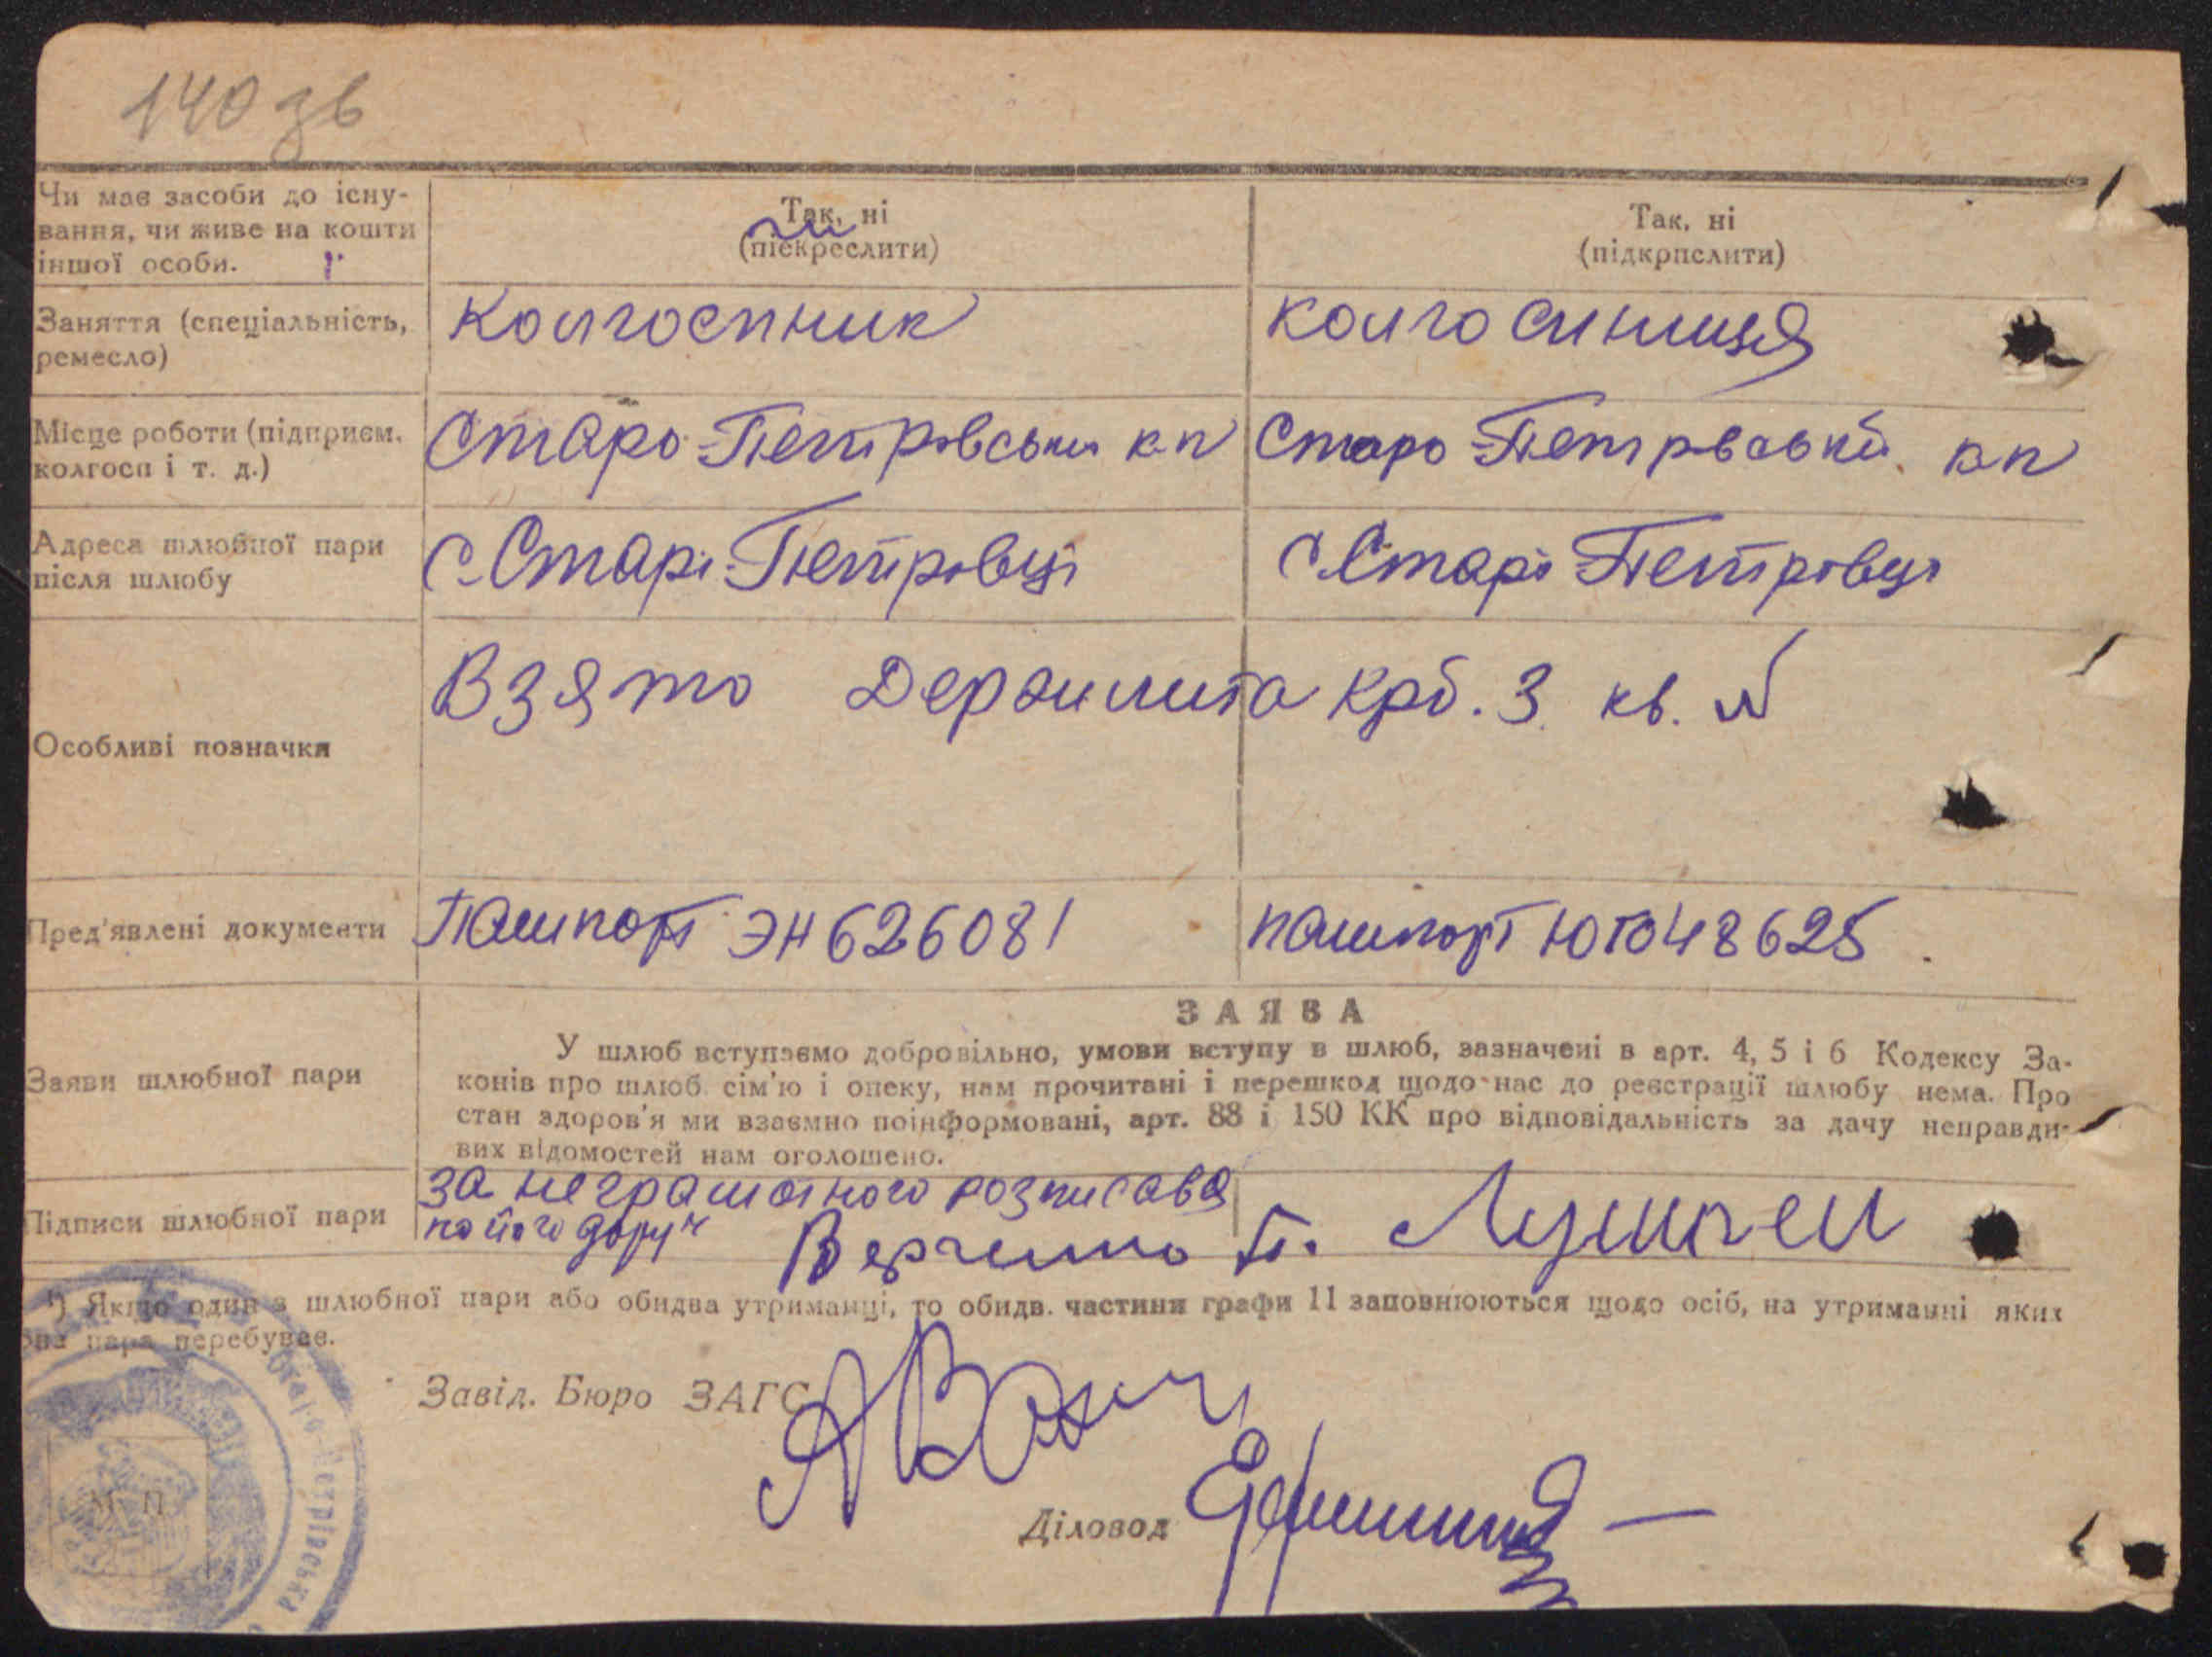 140 зв
Чи має засоби до існу-
вання, чи живе на кошти
іншої особи.
Так, ні
(підкреслити)
Так, ні
(підкрпслити)
Заняття (спеціальність,
ремесло)
Колгоспник
колгоспниця
Місце роботи (підприєм.
колгосп і т. д.)
Старо-Петровськи кп
Старо-Петрвський кп
Адреса шлюбної пари
після шлюбу
с. Старі-Петровці
с. Старі-Петровці
Особливі позначки
Взято Держмита крб. 3 кв. №
Пред'явлені документи
Пашпорт ЭН 626081
пашпорт ЮТ 048625
Заяви шлюбної пари
ЗАЯВА
У шлюб вступаємо добровільно, умови вступу в шлюб, зазначені в арт. 4, 5 і 6 Кодексу За-
конів про шлюб сім'ю і опеку, нам прочитані і перешкод щодо нас до реєстрації шлюбу нема. Про
стан здоров'я ми взаємно поінформовані, арт. 88 і 150 КК про відповідальність за дачу неправди-
вих відомостей нам оголошено.
Підписи шлюбної пари
за неграмотного розписався
по його доруч
П.
¹) Якщо один з шлюбної пари або обидва утриманці, то обидв. частини графи 11 заповнюються щодо осіб, на утриманні яких
пара перебуває.
Завід. Бюро ЗАГС
Діловод
М. П.
Старо-Петрівська